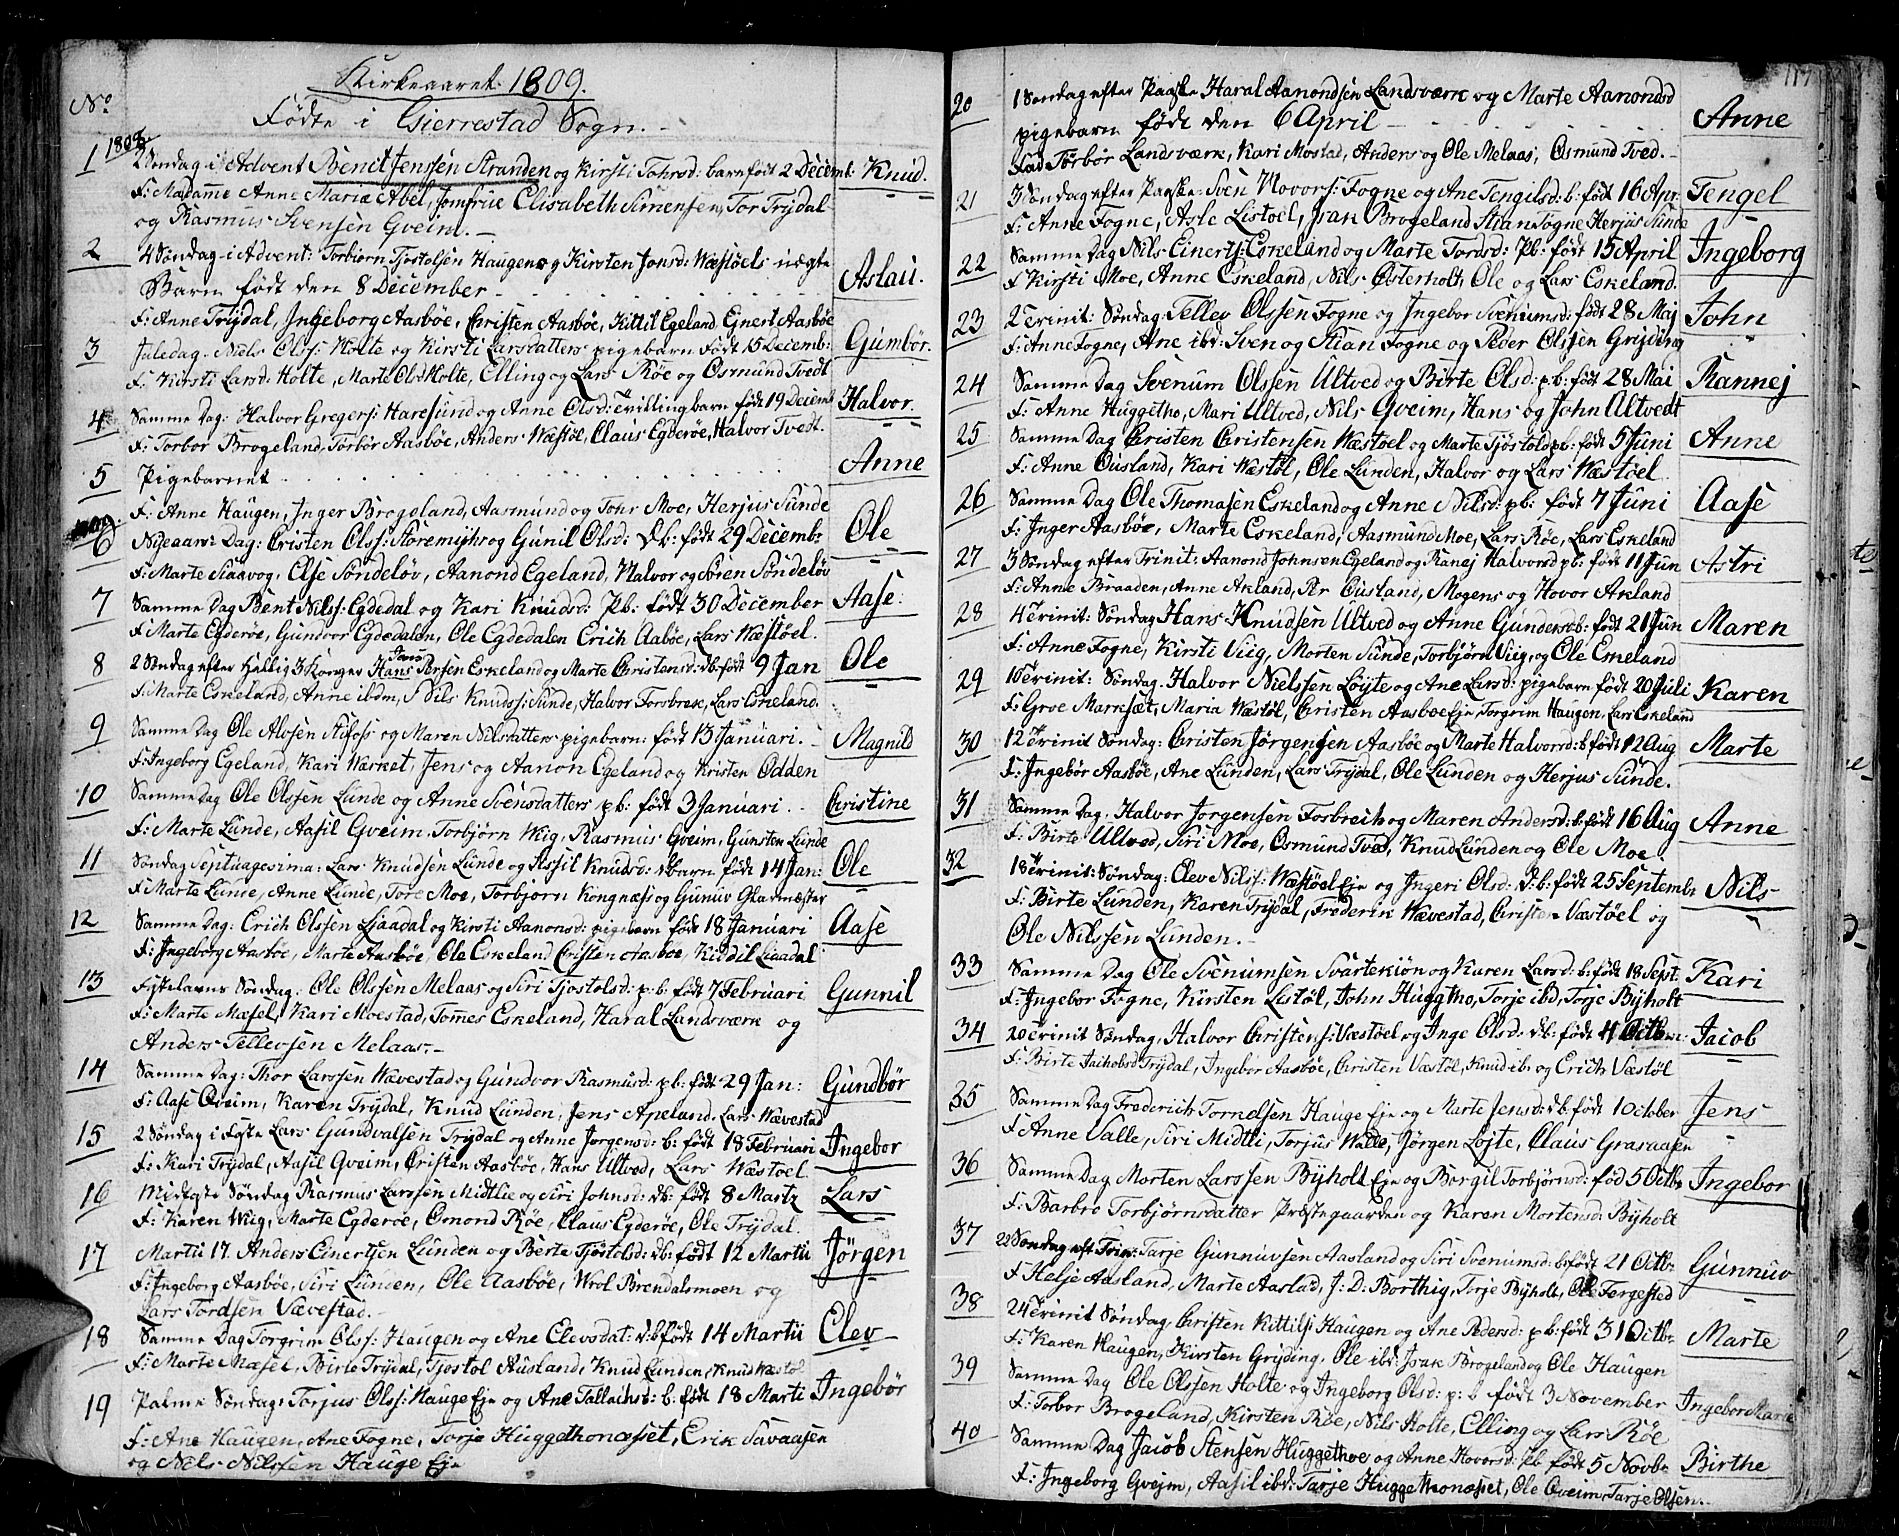 Kirkeaaret 1809.
No
Fødte i Gierrestad Sogn.
1808
1 2 Søndag i Advent Benit Jenssen Stranden og Kirsti Tohrsd: barn født 2 Decemb: Knud.
F: Madame Anne Maria Abel, Jomfrue Elisabeth Simensen, Tor Trydal
og Rasmus Svensen Gveim.
2 4 Søndag i Advent: Torbiørn Tjostolsen Haugen og Kirsten Jonsd: Wæstøels uægte Aslau.
Barn født den 8 December
F: Anne Trydal, Ingeborg Aasbøe, Christen Aasbøe, Kittil Egeland Ejnert Aasbøe
3 Juledag. Niels Olss: Holte og Kirsti Larsdatters pigebarn født 15 Decemb: Gumbør.
F: Kirsti Larsd: Holte, Marte Olsd Holte, Elling og Lars Røe og Osmund Tvedt
4 Samme Dag: Halvor Gregers: Haresund og Anne Olsd: Tvillingbarn født 19 Decemb Halvor.
F: Torbor Brogeland, Torbor Aasbøe, Anders Wæstøl, Claus Egderøe, Halvor Tvedt.
5 Pigebarnet Anne
F: Anne Haugen, Inger Brogeland, Aasmund og Tohr Moe, Herjus Sunde
1809.
6 Nyeaars Dag: Cristen Olss: Støremyhr og Gunil Olsd: Db: født 29 Decemb: Ole
F: Marte Staavog, Else Søndeløv, Aanond Egeland, Halvor og Søren Søndeløv
7 Samme Dag Bent Nilss: Egdedal og Kari Knudsd: Pb: født 30 December Aase.
F: Marte Egderøe, Gundvor Egdedalen, Ole Egdedalen Erich Aabøe, Lars Wæstøel.
8 2 Søndag efter Hellig 3 Konger Hans Jens Persen Eskeland og Marte Christensd: db: født 9 Jan Ole
F: Marte Eskeland, Anne ibdm, Nils Knudss: Sunde, Halvor Torsbrek, Lars Eskeland.
9 Samme Dag Ole Alvsen Stifoss og Maren Nilsdatters pigebarn: født 13 Januari. Magnild
F: Ingeborg Egeland, Kari Warket, Jens og Aanon Egeland og Kristen Odden
10 Samme Dag Ole Olssen Lunde og Anne Svensdatters pb: født 3 Januari. Christine
F: Marte Lunde, Aasil Gveim, Torbjørn Wiig, Rasmus Gveim, Gunsten Lunde
11 Søndag Septuagesima: Lars Knudsen Lunde og Assil Knudsd: dbarn født 14 Jan: Ole
F: Marte Lunde, Anne Lunde, Tore Moe, Torbjørn Kongnæss og Gunuv Glasmæster
12 Samme Dag: Erich Olssen Ljaadal og Kirsti Aanonsd: pigebarn født 18 Januari Aase
F: Ingeborg Aasbøe, Marte Aasbøe, Ole Eskeland Cristen Aasbøe, Kiddil Liaadal
13 Fastelavns Søndag: Ole Olssen Melaas og Siri Tjostolsd: p: b: født 7 Februari Gunnil
F: Marte Mæsel, Kari Moestad, Tomes Eskeland, Haral Landsværk og
Anders Tellevsen Melaas.
14 Samme Dag: Thor Larssen Wævestad og Gundvor Rasmusd: pb: født 29 Jan: Gundbør
F: Aase Qveim, Karen Trydal, Knud Lunden, Jens Apeland, Lars Wævestad
15 2 Søndag i Faste Lars Gundvalsen Trydal og Anne Jørgensd: b: født 18 Februari Ingebor
F: Kari Trydal, Aasil Gveim, Cristen Aasbøe, Hans Ultved, Lars Wæstøel
16 Midfaste Søndag Rasmus Larssen Midtlie og Siri Johnsd: db: født 8 Martz Lars
F: Karen Wiig, Marte Egderøe, Osmond Røe, Claus Egderøe, Ole Trydal.
17 Martii 17. Anders Einertsen Lunden og Berte Tjøstolsd: db: født 12 Martii Jørgen
F: Ingeborg Aasbøe, Siri Lunden, Ole Aasbøe, Wrol Brendalsmoen og
Lars Tordsen Vævestad.
18 Samme Dag Torgrim Olss: Haugen og Ane Elevsdat: d:b født 14 Martii Elev
F: Marte Mæsel, Birte Trydal, Tjostol Ausland, Knud Lunden, Knud Wæstøl
19 Palme Søndag: Torjus Olss: Hauge Eje og Ane Tallachsd: b: født 18 Marti Ingebør
F: Ane Haugen, Ane Fogne, Torje Huggethonæsset, Erik Savaasen
og Nils Nilssen Hauge Eje
117
20 1 Søndag efter Paaske Haral Aanondsen Landsværk og Marte Aanondsd
pigebarn født den 6 April Anne
Fad Torbør Landsværk, Kari Mostad, Anders og Ole Melaas, Osmund Tved.
21 3 Søndag efter Paaske: Sven Hovors: Fogne og Ane Tengilsd: b: født 16 Apr. Tengel
F: Anne Fogne, Asle Listøel, Isak Brogeland Stian Fogne Herjus Sunde
22 Samme Dag Nils Einerts: Eskeland og Marte Tordsd: Pb: født 15 April Ingeborg
F Kirsti Moe, Anne Eskeland, Nils Østerholt, Ole og Lars Eskeland.
23 2 Trinit: Søndag Tellev Olssen Fogne og Ingebor Svenumsd: født 28 Maj John
F: Anne Fogne, Ane ibd: Sven og Stian Fogne og Peder Olssen Gryding
24 Samme Dag Svenum Olssen Ultved og Birte Olsd: pb: født 28 Mai Rannej
F: Anne Huggetho, Mari Ultved, Nils Gveim, Hans og John Ultvedt
25 Samme Dag Christen Christensen Wæstøel og Marte Tjøstolsd pb: født 5 Juni Anne
F: Anne Ousland, Kari Wæstøl, Ole Lunden, Halvor og Lars Wæstøel
26 Samme Dag Ole Thomasen Eskeland og Anne Nilsd: pb: født 7 Juni Aase
F: Inger Aasbøe, Marte Eskeland, Aasmund Moe, Lars Røe, Lars Eskeland
27 3 Søndag efter Trinit: Aanond Johnsen Egeland og Ranej Halvorsd pb: født 11 Jun Astri
F: Anne Braaden, Anne Akland, Per Ousland, Mogens og Hovor Akland
28 4 Trinit: Søndag Hans Knudsen Ultved og Anne Gundersd: b: født 21 Jun Maren
F: Anne Fogne, Kirsti Viig, Morten Sunde, Torbjørn Viig, og Ole Emeland
29 10 Trinit: Søndag: Halvor Nielssen Løyte og Ane Larsd: pigebarn født 20 Juli Karen
F: Groe Markset, Maria Wæstøl, Christen Aasboe Eje, Torgrim Haugen, Lars Eskeland
30 12 Trinit Søndag: Christen Jørgensen Aasbøe og Marte Halvorsd: b: født 12 Aug Marte
F: Ingebør Aasbøe, Ane Lunden, Lars Trydal, Ole Lunden og Herjus Sunde.
31 Samme Dag: Halvor Jørgensen Torbreck og Maren Andersd: b: født 16 Aug Anne
F: Birte Ultved, Siri Moe, Osmund Tved, Knud Lunden og Ole Moe.
32 18 Trinit: Søndag: Elev Nilss: Wæstøel Eje og Ingeri Olsd: D: b: født 25 Septembr Nils
F: Birte Lunden, Karen Trydal, Frederik Wævestad, Christen Væstøel og
Ole Nilssen Lunden.
33 Samme Dag Ole Svenumsen Svartekiøn og Karen Larsd: b: født 18 Sept: Kari
F: Ingebor Fogne, Kirsten Listøl, John Huggtho, Torje ibd, Torje Byholt
34 20 Trinit Søndag, Halvor Christens: Væstøel og Inge Olsd: db: født 4 Octb Jacob
F: Birte Jaichobsd Trydal, Ingebør Aasbøe, Christen Væstøl, Knud ibr og Erich Væstøl
35 Samme Dag Frederich Tornelsen Hauge Eje og Marte Jensd: db: født 1 October Jens
F Anne Valle, Siri Midtli, Torjus Walle, Jørgen Løjte, Claus Grasaasen
36 Samme Dag Morten Larssen Byholt Eje og Borgil Torbjørnsd: fød 5 Octbr Ingebor
F: Barbro Torbjørnsdatter Præstegaarden og Karen Mortensd: Byholt
37 22 Søndag eft Trin: Tarje Gunnuvsen Aasland og Siri Svenumsd: b: født 21 Octbr Gunnuv
F Helje Aasland, Marte Aaslad, J: D: Borthig, Torje Byholt, Ole Fergested
38 24 Trinit Søndag Christen Kittilss Haugen og Ane Pedersd: p b: født 31 Octbr Marte
F: Karen Haugen, Kirsten Gryding, Ole ibd: Isak Brogeland og Ole Haugen
39 Samme Dag Ole Olssen Holte og Ingeborg Olsd: p: b født 3 November Ingebor Marie
F: Torbor Brogeland, Kirsten Røe, Nils Holte, Elling og Lars Røe
40 Samme Dag Jacob Stensen Huggethoe og Anne Hovorsd: pb født 5 Novbr Birthe
F: Ingeborg Gvejm, Aasil ibd: Tarje Huggethonæsset, Ole Qveim, Tarje Olsen.